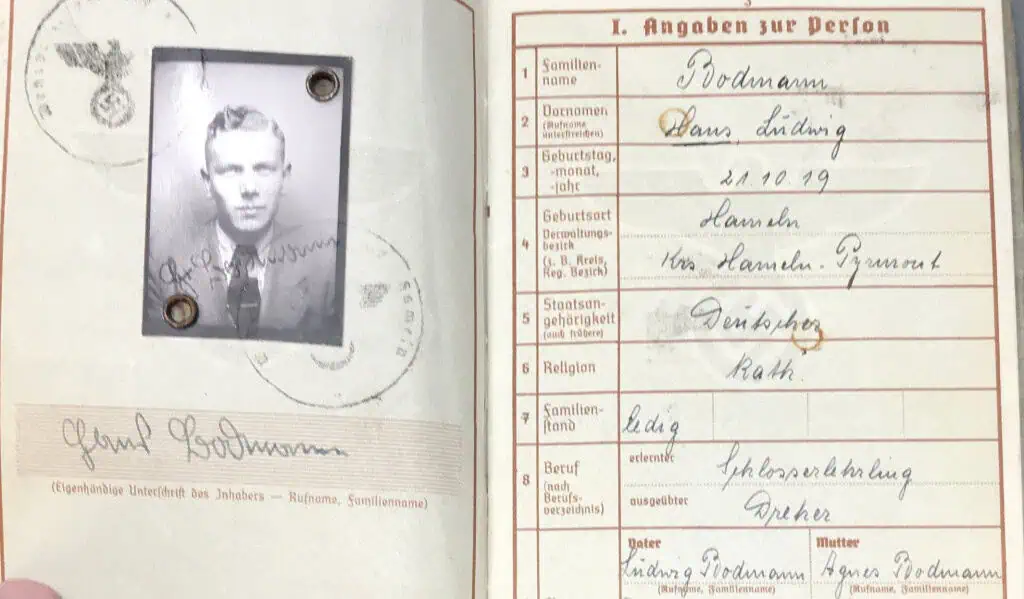 Hans Bodmann
(Eigenhändige Unterschrift des Inhabers — Rufname, Familienname)
I. Angaben zur Person
1 Familien-
name
Bodmann
2 Vornamen
(Rufname
unterstreichen)
Hans Ludwig
3 Geburtstag,
-monat,
-jahr
21.10.19
4 Geburtsort
Verwaltungs-
bezirk
(z. B. Kreis,
Reg. Bezirk)
Hameln
Krs Hameln-Pyrmont
5 Staatsan-
gehörigkeit
(auch frühere)
Deutscher
6 Religion
Kath.
7 Familien-
stand
ledig
8 Beruf
(nach
Berufs-
verzeichnis)
erlernter
Schlosserlehrling
ausgeübter
Dreher
Vater
Mutter
Ludwig Bodmann
Agnes Bodmann
(Rufname, Familienname)
(Rufname, Familienname)